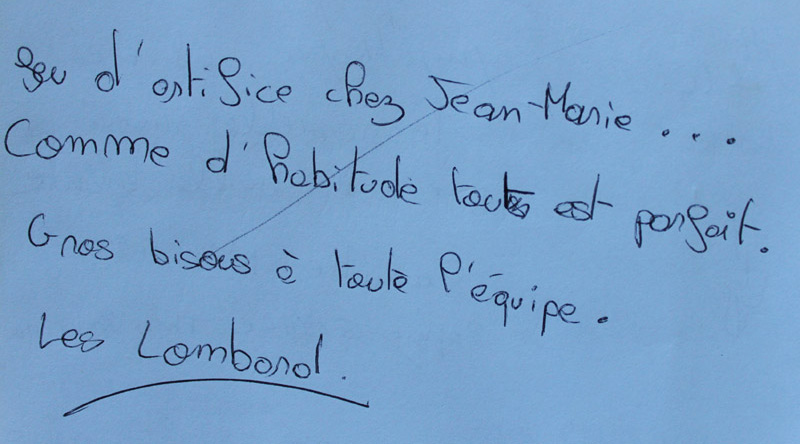 feu d'artifice chez Jean-Marie...
Comme d'habitude tout est parfait.
Gros bisous à toute l'équipe.
Les Lombard.